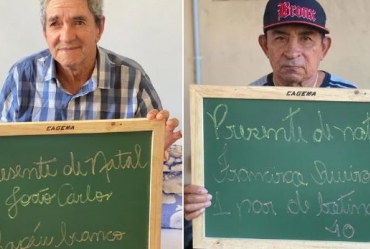 CAGEMA
resente di Natal
João Carlos
branco
Bronx
CAGEMA
Presente di nat
Francisco
1 par de botin
40